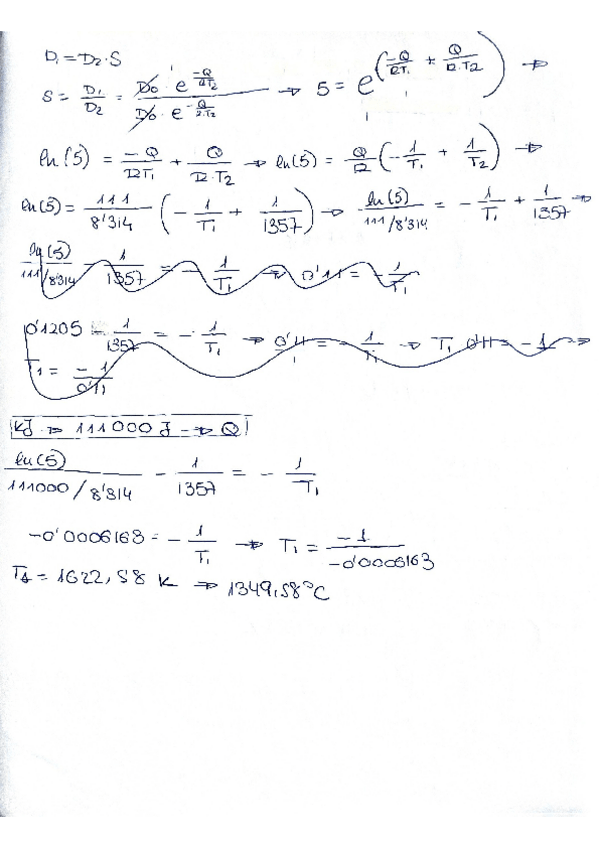 D₁ = D₂·5
5 = D₁/D₂ = D₀·e^(-Q/RT₂) / D₀·e^(-Q/R·T₂) → 5 = e^(-Q/RT₁ + Q/R·T₂) →
ln(5) = -Q/RT₁ + Q/R·T₂ → ln(5) = Q/R (-1/T₁ + 1/T₂) →
ln(5) = 111/8'314 (-1/T₁ + 1/1357) → ln(5)/111/8'314 = -1/T₁ + 1/1357 →
ln(5)/111/8'314 - 1/1357 = -1/T₁ → 0'11 = -1/T₁
0'1205 - 1/1357 = -1/T₁ → 0'11 = -1/T₁ → T₁ 0'11 = -1 →
T₁ = -1/0'11
KJ → 111000 J → Q
ln(5)/111000/8'314 - 1/1357 = -1/T₁
-0'0006163 = -1/T₁ → T₁ = -1/-0'0006163
T₁ = 1622,58 K → 1349,58°C